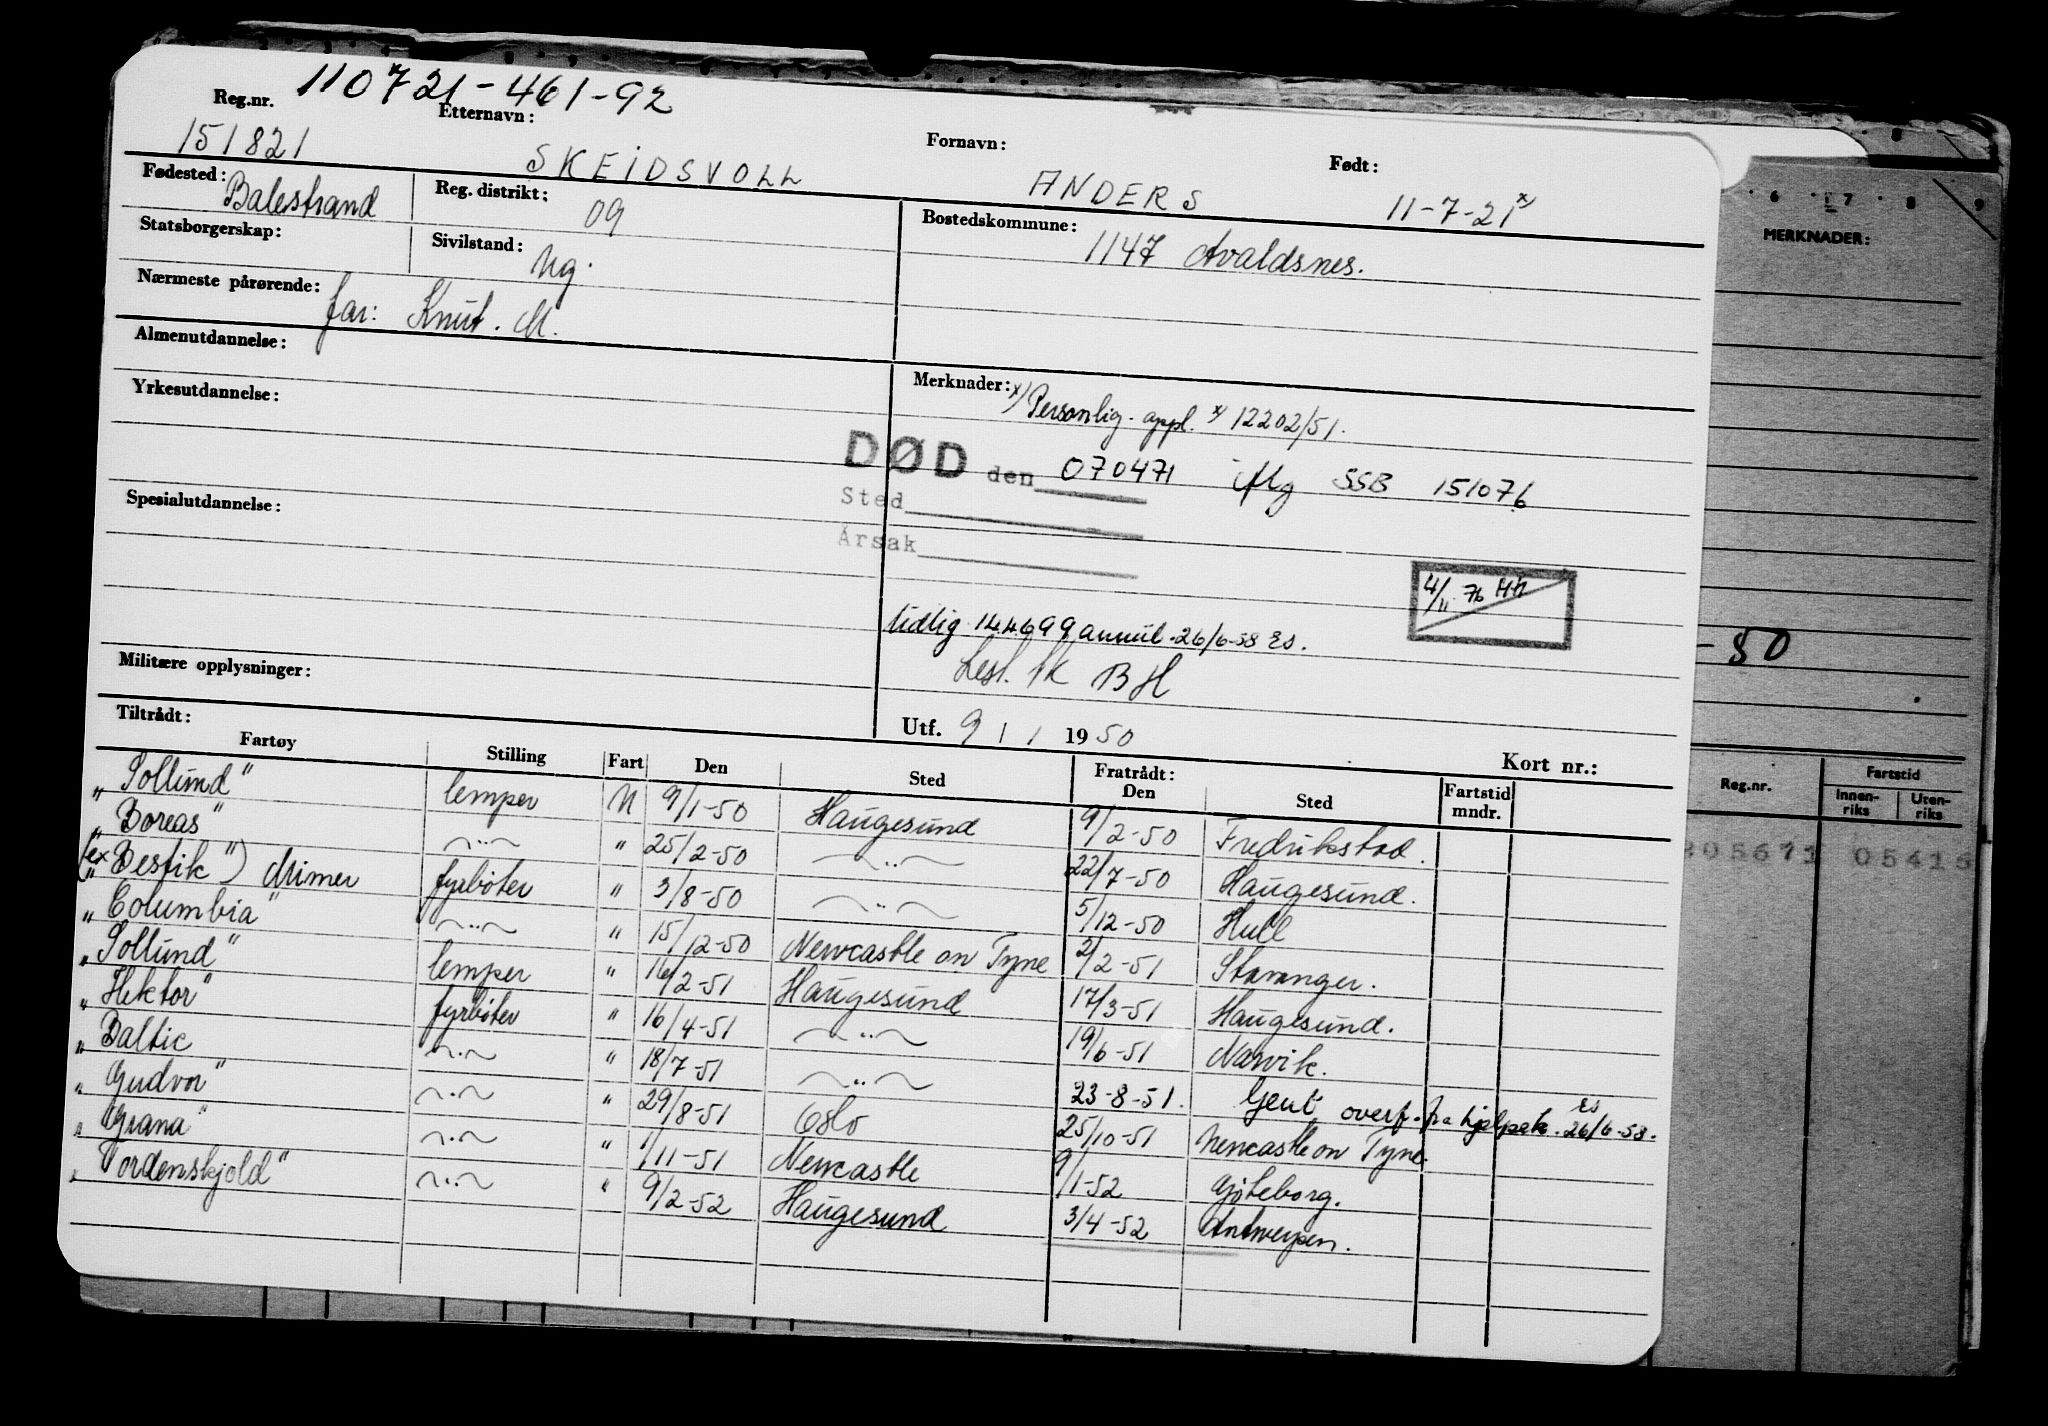 110721-461-92
Reg.nr. Etternavn: Fornavn: Født:
151821 SKEIDSVOLL ANDERS 11-7-21 x)
Fødested: Balestrand Reg. distrikt: 09 Bostedskommune: 1147 Avaldsnes.
Statsborgerskap: Sivilstand: Ug.
Nærmeste pårørende: far: Knut. M.
Almenutdannelse:
Yrkesutdannelse:
Merknader: x) Personlig. oppl. x) 12202/51.
DØD den 070471 iflg SSB 151076
Sted
Årsak
Spesialutdannelse:
4/11 76
tidlig 144699 annul. 26/6-58 Es.
BH
Militære opplysninger:
Utf. 9/1 1950
Kort nr.:
Tiltrådt: Fratrådt:
Fartøy Stilling Fart Den Sted Den Sted Fartstid mndr.
"Sollund" lemper N 9/1-50 Haugesund 9/2-50 Fredrikstad.
"Boreas" ~"~ " 25/2-50 ~"~ 22/7-50 Haugesund.
(ex "Bestik") Mimer fyrbøter " 3/8-50 ~"~ 5/12-50 Hull
"Columbia" ~"~ " 15/12-50 Newcastle on Tyne 2/2-51 Stavanger.
"Sollund" lemper " 16/2-51 Haugesund 17/3-51 Haugesund.
"Hektor" fyrbøter " 16/4-51 ~"~ 19/6-51 Narvik.
"Baltic ~"~ " 18/7-51 ~"~ 23-8-51. Gent, overf. fra hjelpek. 26/6-58. Es
"Gudvor" ~"~ " 29/8-51 Oslo 25/10-51 Newcastle on Tyne.
"Grana" ~"~ " 1/11-51 Newcastle 9/1-52 Gøteborg.
"Tordenskjold" ~"~ " 9/2-52 Haugesund 3/4-52 Antwerpen.
6 7 8 9
MERKNADER:
-50
Reg.nr. Fartstid
Innen-riks Uten-riks
05416